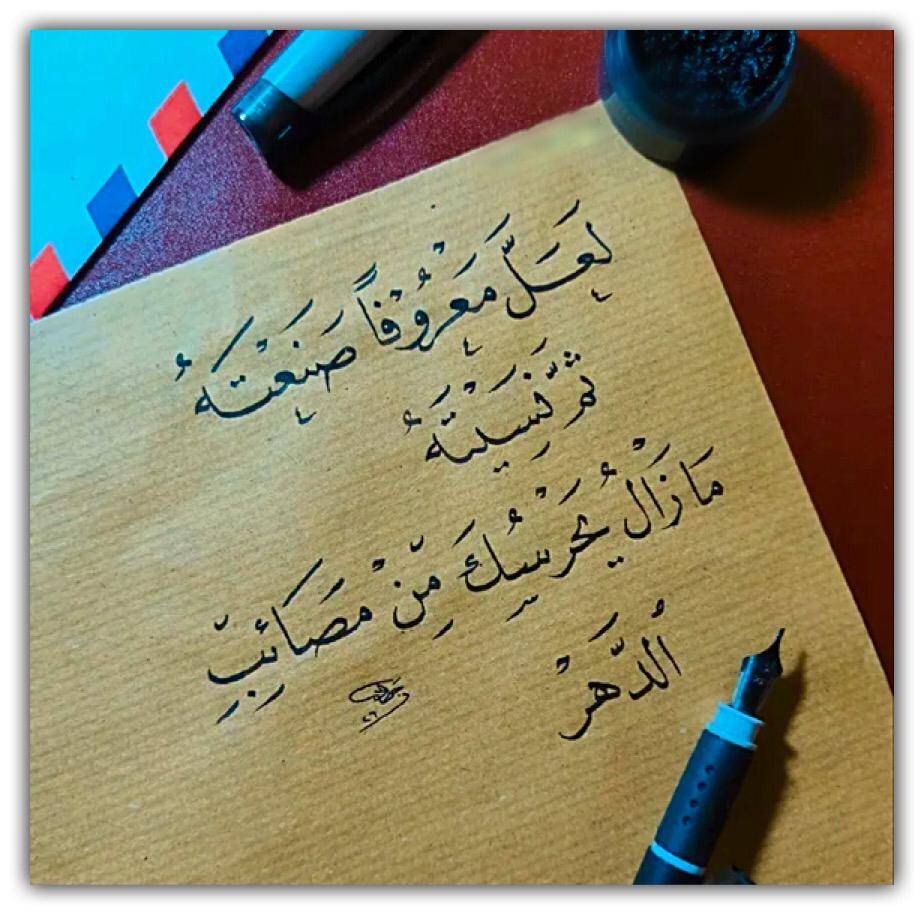 لَعَلَّ مَعْرُوفًا صَنَعْتَهُ
ثُمَّ نَسِيتَهُ
مَا زَالَ يَحْرُسُكَ مِنْ مَصَائِبِ
الدَّهْرْ